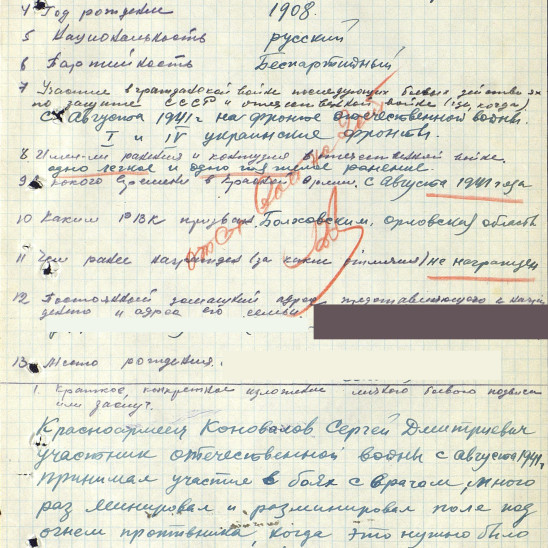 4 Год рождения 1908.
5 Национальность русский
6 Партийность Беспартийный
7 Участие в гражданской войне последующих боевых действиях
по защите СССР и отечественной войне (где, когда)
С Августа 1941г на фронте отечественной войны.
I и IV украинские фронты.
8 Имел-ли ранения и контузия в отечественной войне.
одно легкое и одно тяжелое ранение.
9 С какого времени в Красной армии. с Августа 1941 года
10 Каким РВК призван, Болховским, Орловская область
11 Чем ранее награжден (за какие отличия) не награжден
12 Постоянный домашний адрес представляемого к
и адрес его семьи.
13. Место рождения.
1. Краткое, конкретное изложение личного боевого подвига
или заслуг.
Красноармеец Коновалов Сергей Дмитриевич
участник отечественной войны с августа 1941г.
принимал участие в боях с врагом, много
раз минировал и разминировал поле под
огнем противника, когда это нужно было